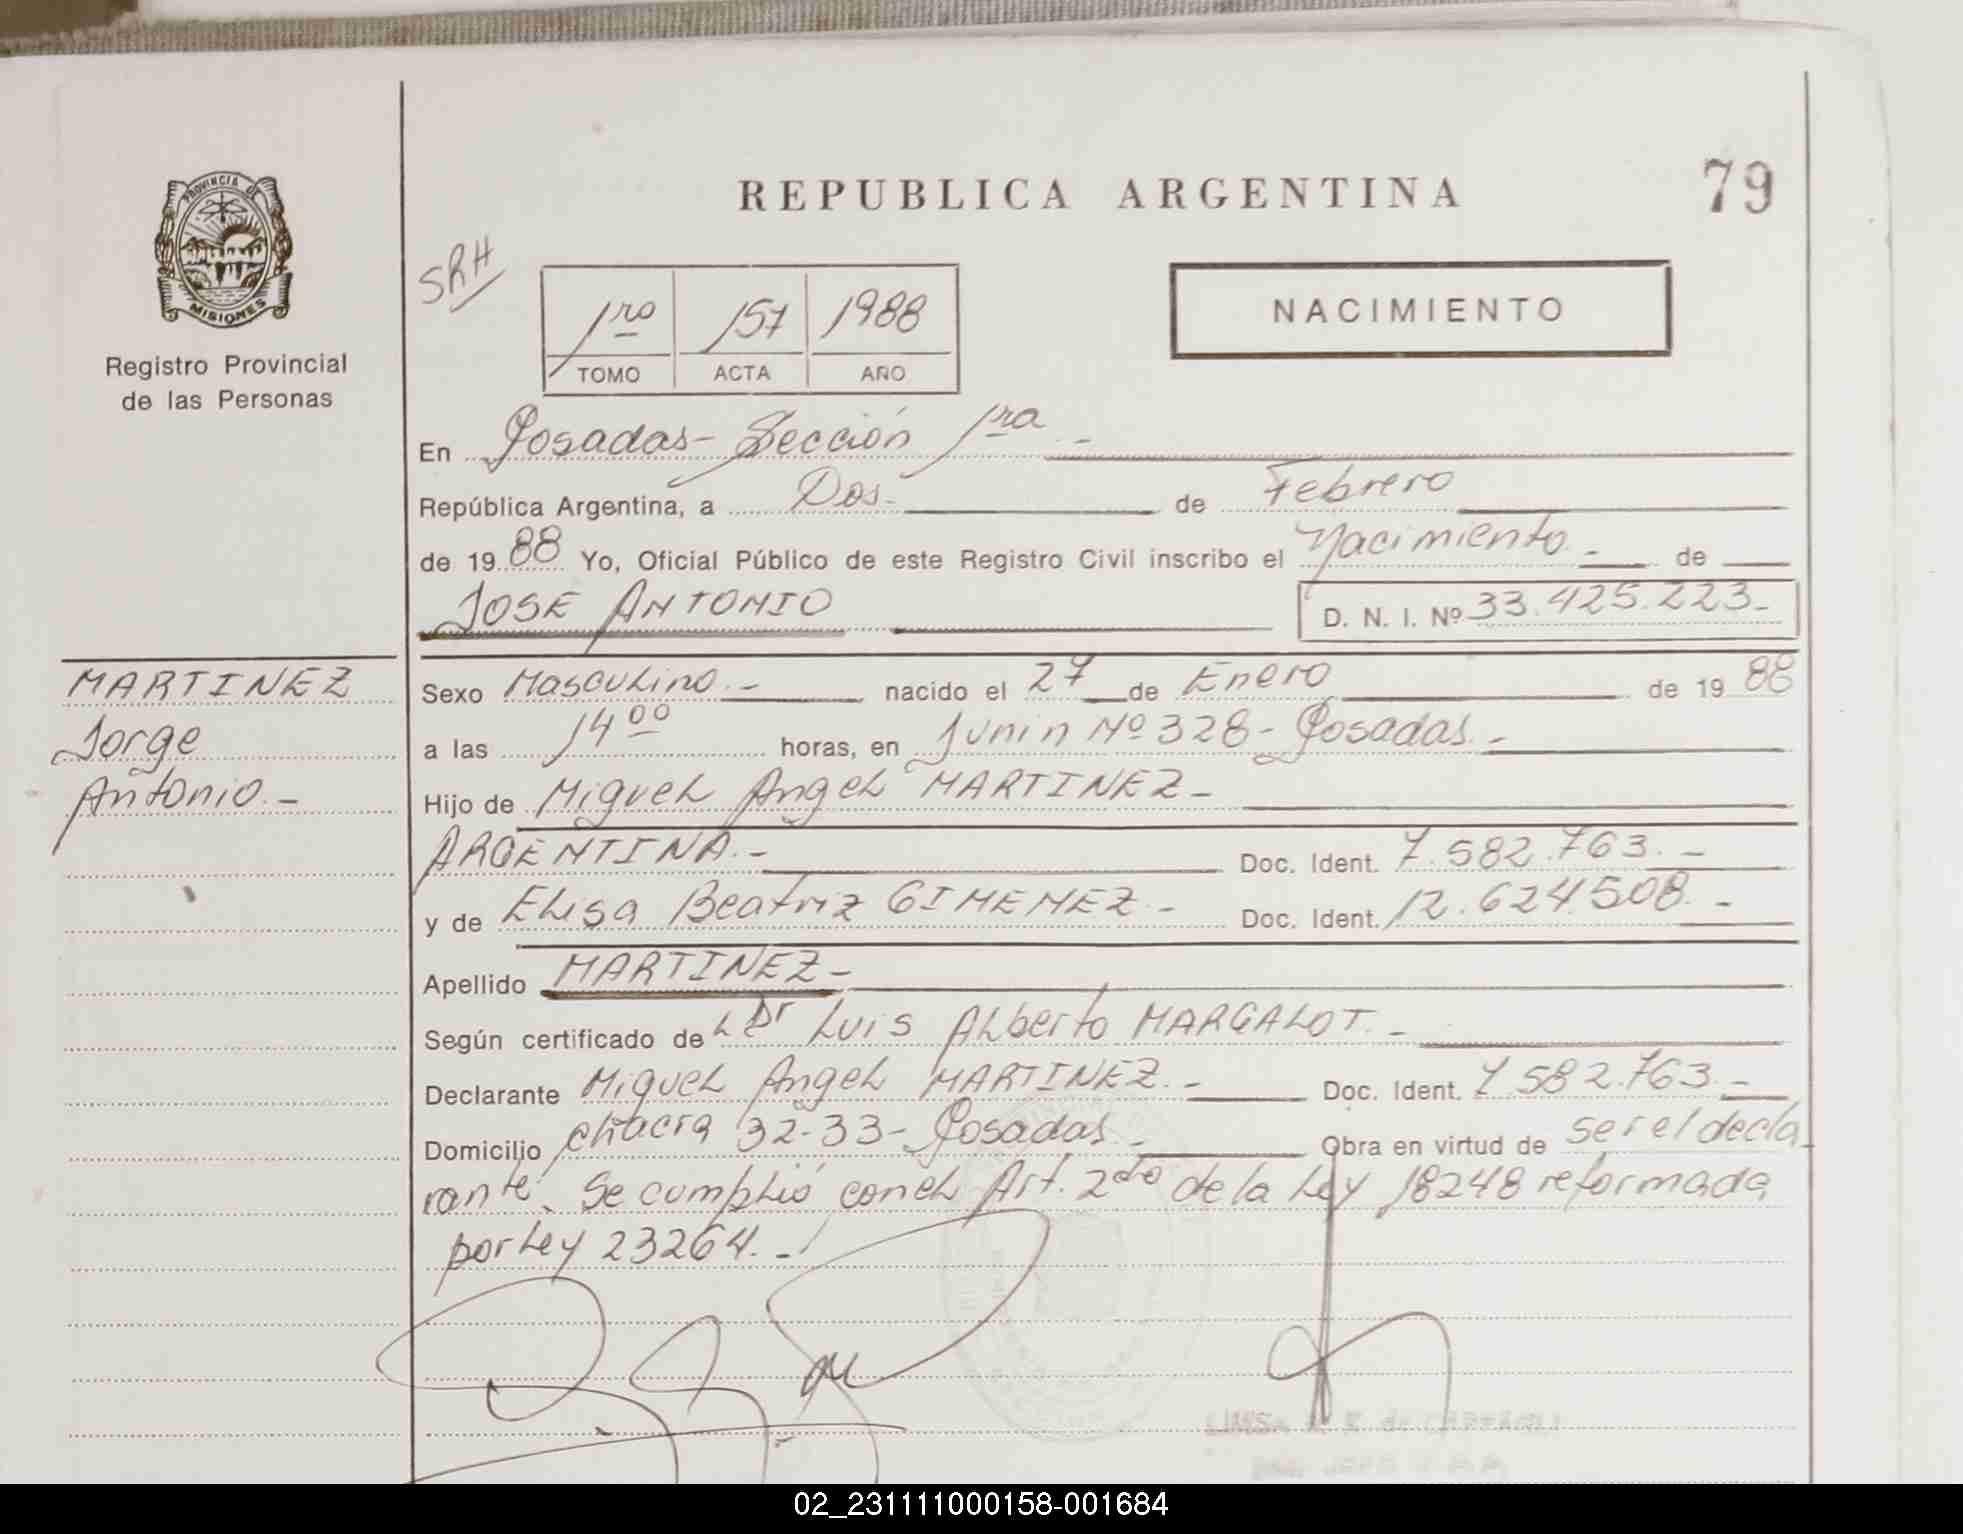 REPUBLICA ARGENTINA
79
PROVINCIA DE
MISIONES
Registro Provincial
de las Personas
SRH
1ro 157 1988
TOMO ACTA AÑO
NACIMIENTO
En Posadas- Sección 1ra -
República Argentina, a Dos- de Febrero
de 1988 Yo, Oficial Público de este Registro Civil inscribo el Nacimiento - de
JOSE ANTONIO D. N. I. Nº 33.425.223-
MARTINEZ
Jorge
Antonio.-
Sexo Masculino.- nacido el 27 de Enero de 1988
a las 14 00 horas, en Junin Nº 328- Posadas.-
Hijo de Miguel Angel MARTINEZ-
ARGENTINA.- Doc. Ident. 7.582.763.-
y de Elisa Beatriz GIMENEZ- Doc. Ident. 12.624.508.-
Apellido MARTINEZ-
Según certificado de Dr Luis Alberto MARGALOT.-
Declarante Miguel Angel MARTINEZ.- Doc. Ident. 7.582.763.-
Domicilio chacra 32-33- Posadas.- Obra en virtud de ser el decla
rante. Se cumplió con el Art. 2do de la Ley 18248 reformada
por Ley 23264.-
02_231111000158-001684